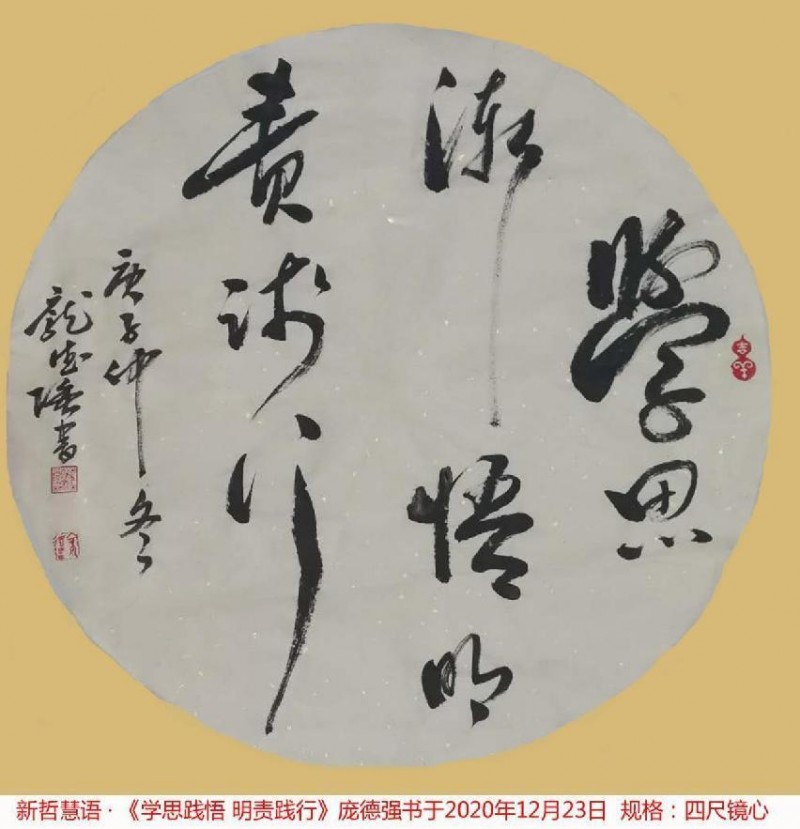 學思
漸悟明
責践行
庚子仲冬
龐德强書
吉羊
新哲慧语·《学思践悟 明责践行》庞德强书于2020年12月23日 规格：四尺镜心